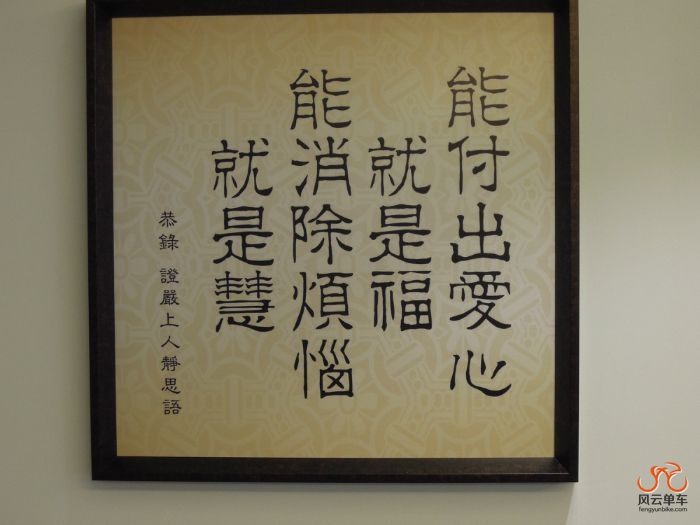 能付出愛心
就是福
能消除煩惱
就是慧
恭錄 證嚴上人靜思語
风云单车
fengyunbike.com